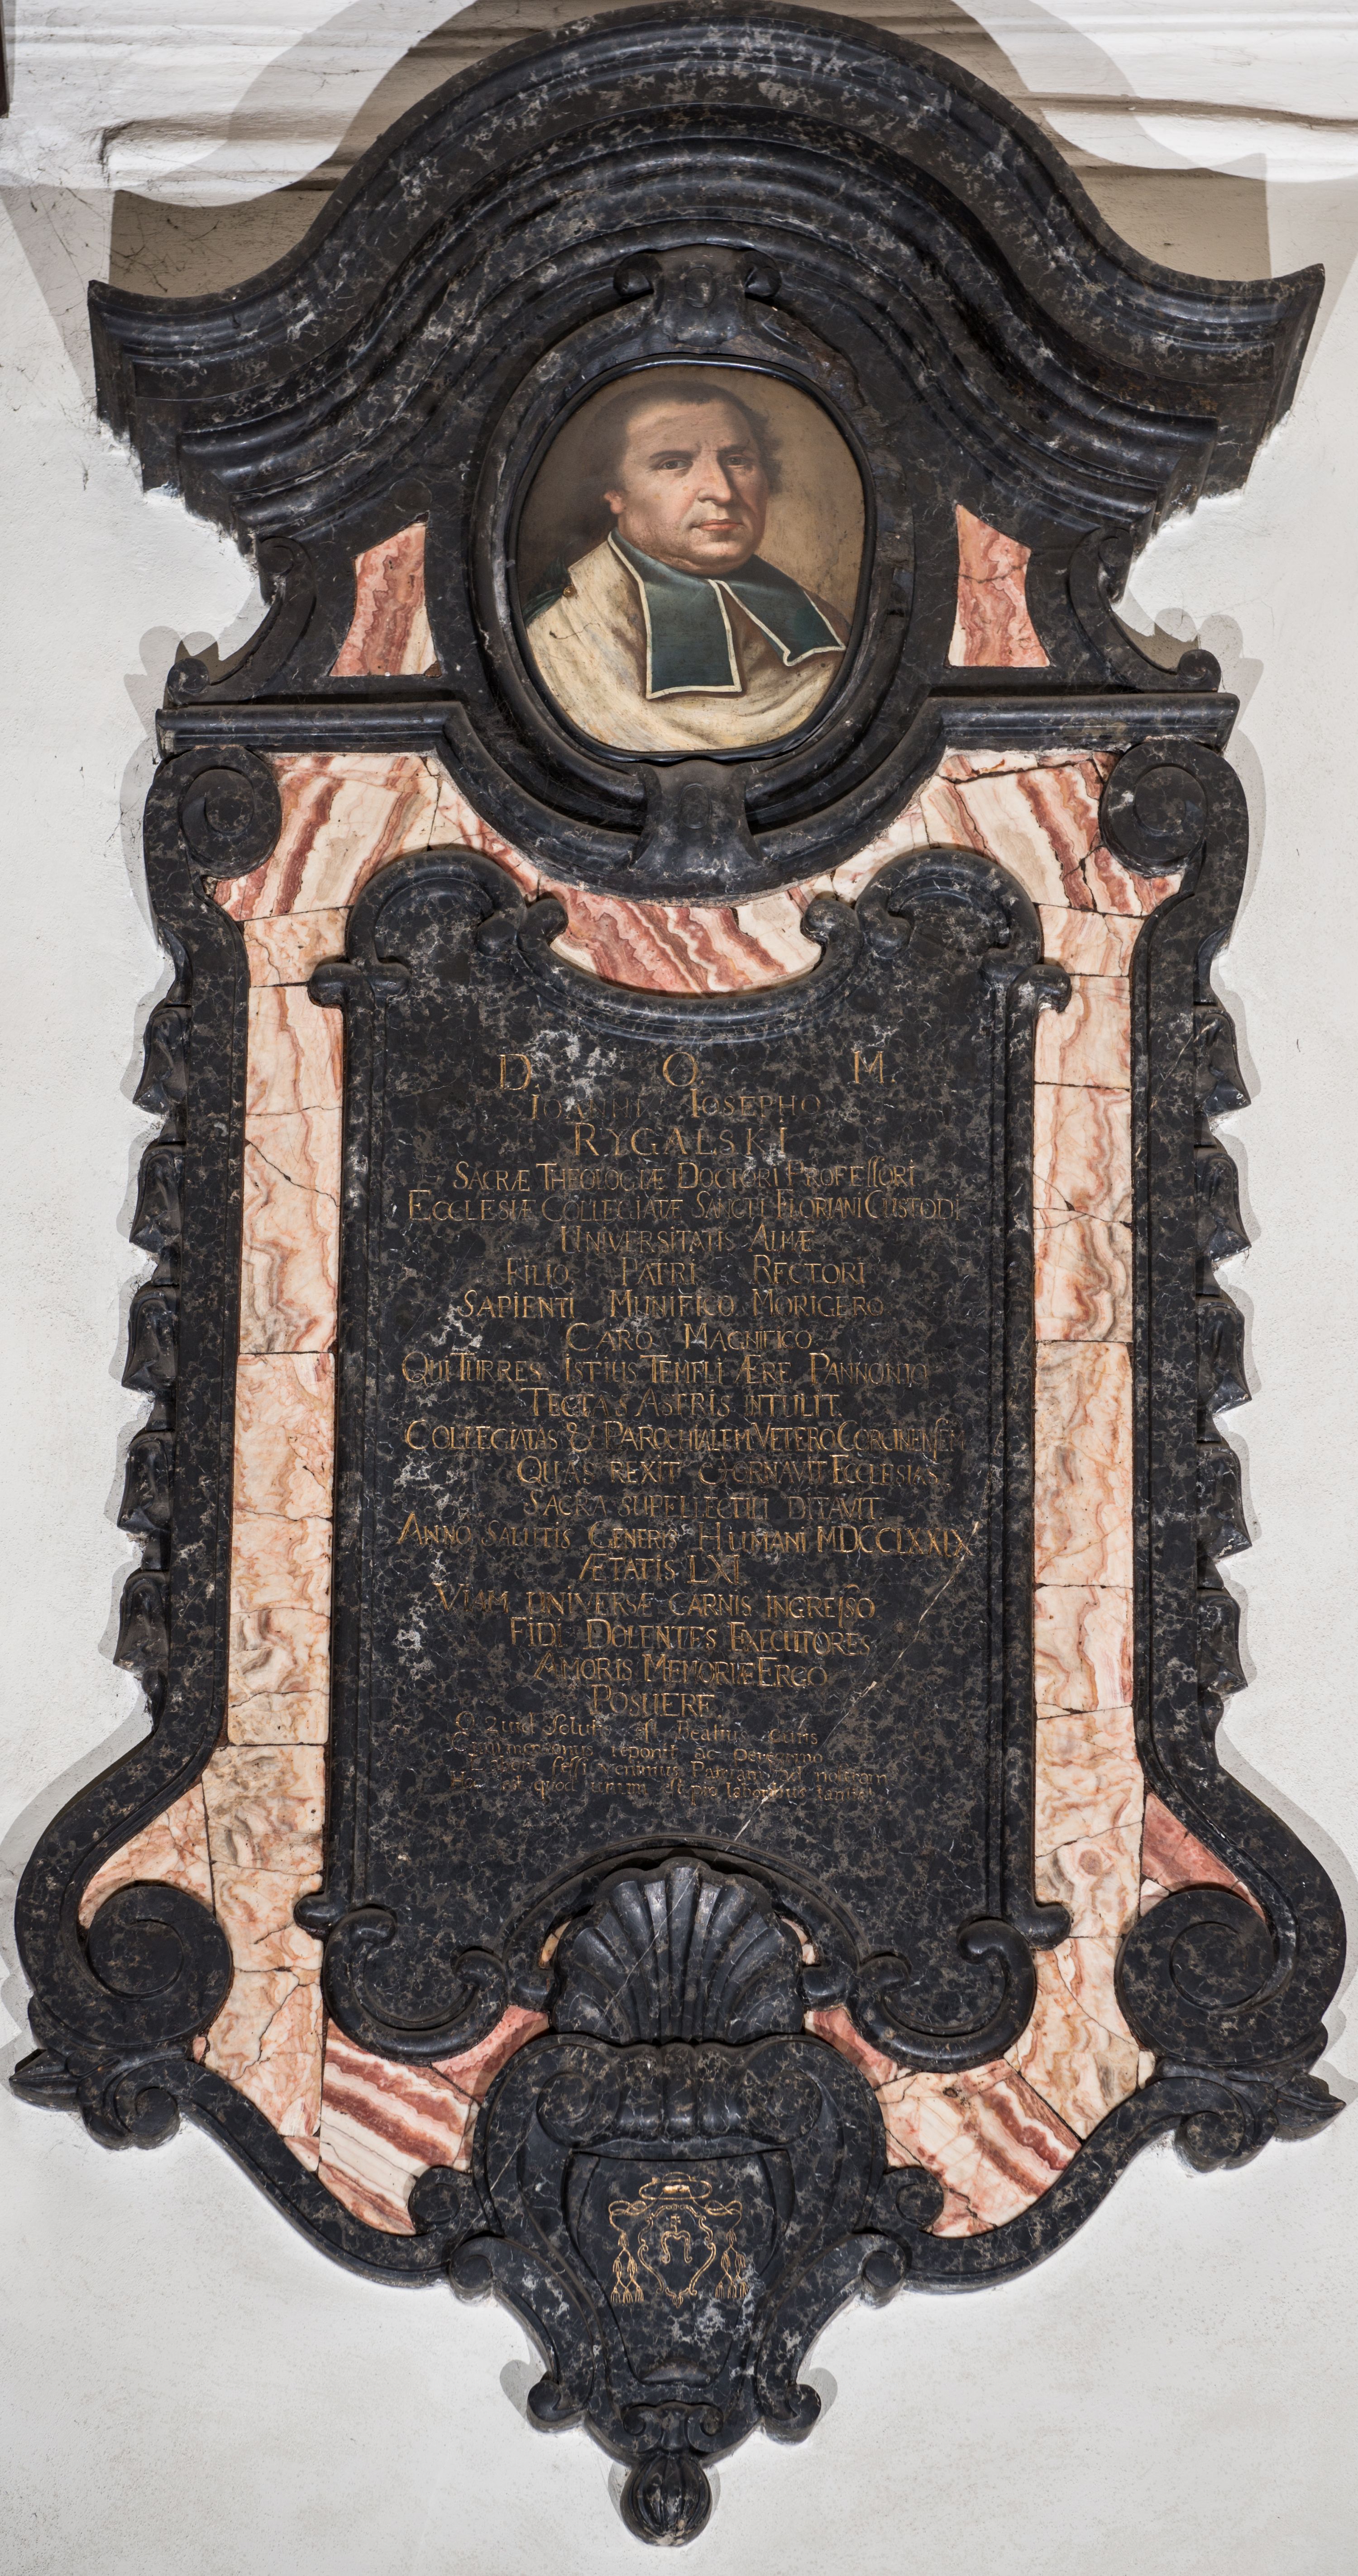 D. O. M.
IOANNI IOSEPHO
RYGALSKI
SACRÆ THEOLOGIÆ DOCTORI PROFESSORI
ECCLESIÆ COLLEGIATÆ SANCTI FLORIANI CUSTODI
UNIVERSITATIS ALMÆ
FILIO PATRI RECTORI
SAPIENTI MUNIFICO MORIGERO
CARO MAGNIFICO
QUI TURRES ISTIUS TEMPLI ÆRE PANNONIO
TECTAS ASTRIS INTULIT.
COLLEGIATAS & PAROCHIALEM VETERO CORCINENSEM
QUAS REXIT EXORNAVIT ECCLESIAS.
SACRA SUPELLECTILI DITAVIT.
ANNO SALUTIS GENERIS HUMANI MDCCLXXIX
ÆTATIS LXI
VIAM UNIVERSÆ CARNIS INGRESSO
FIDI DOLENTES EXECUTORES
AMORIS MEMORIÆ ERGO
POSUERE.
O Quid Solutis est Beatius curis
Cum mens onus reponit ac Peregrino
Labore fessi venimus Patriam ad nostram
Hoc est quod unum est pro laboribus tantis